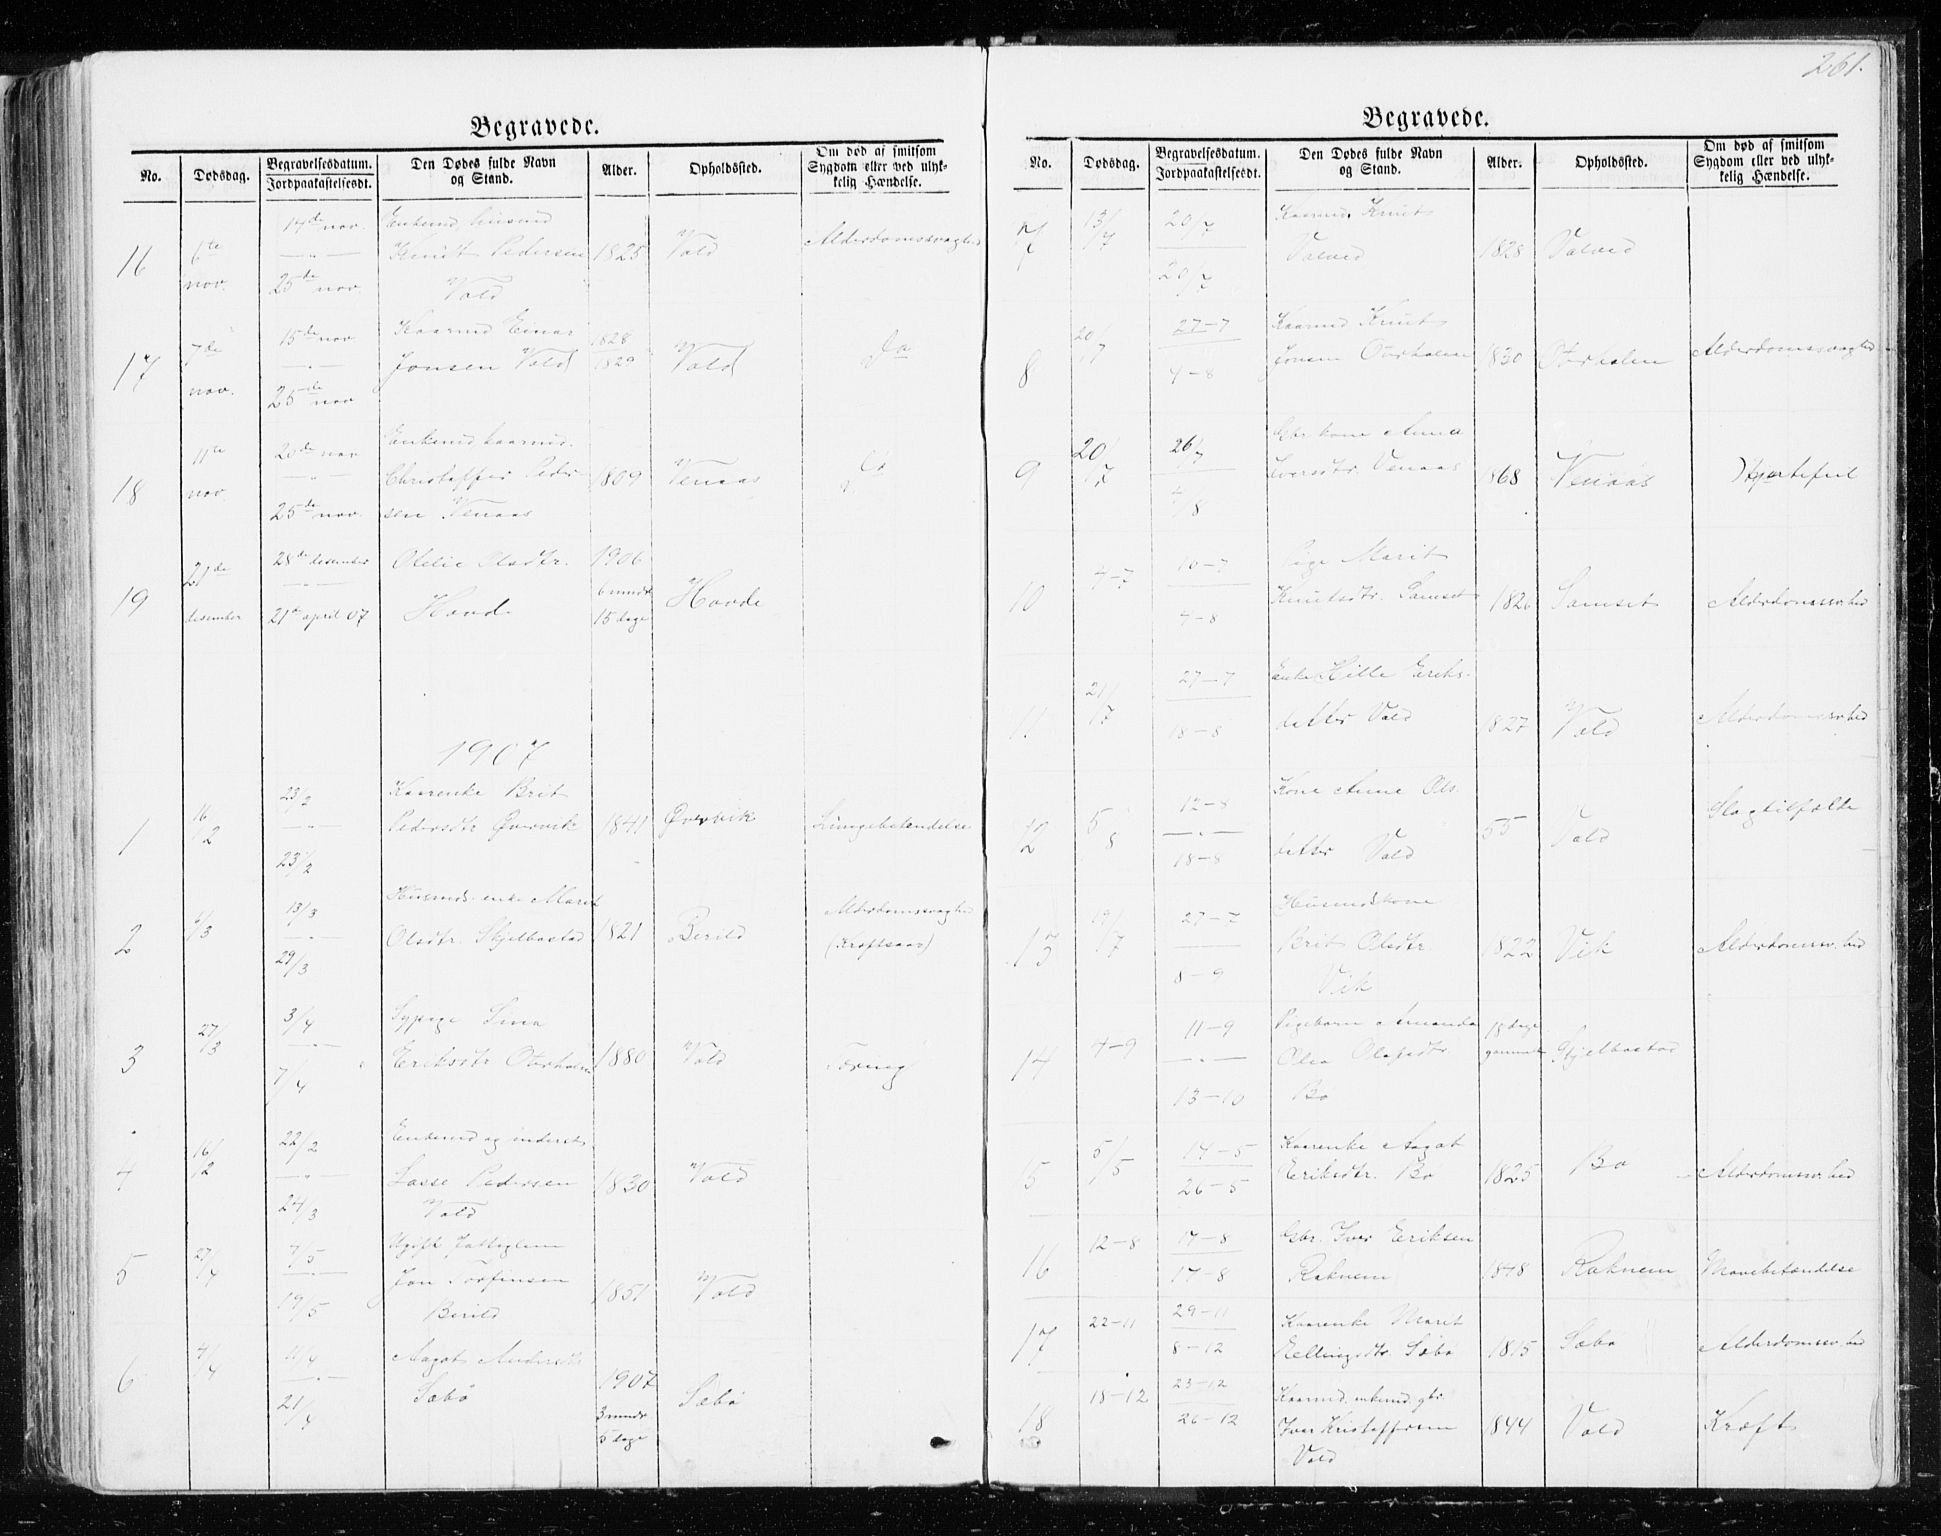 261.
Begravede.
No. Dødsdag. Begravelsesdatum. Jordpaakastelsesdt. Den Dødes fulde Navn og Stand. Alder. Opholdssted. Om død af smitsom Sygdom eller ved ulykkelig Hændelse.
16 6te nov. 14de nov. 25de nov. Enkemd husmd Knut Pedersen Vold 1825 Vold Alderdomssvaghed
17 7de nov. 15de nov. 25de nov Kaarmd Einar Jonsen Vold 1828 1829 Vold Do
18 11te nov. 20de nov 25de nov. Enkemd kaarmd. Christoffer Pedersen Venaas 1809 Venaas Do
19 21de desember 28de desember 21de april 07 Otelie Olsdtr. Hovde 1906 6 mndr 15 dage Hovde
1907
1 16/2 23/2 23/2 Kaarenke Brit Pedersdtr Øvervik 1841 Øvervik Lungebetendelse
2 6/3 13/3 29/3 Husmds. enke Marit Olsdtr. Skjelbostad 1821 Berild Alderdomssvaghed (Kræftsaar)
3 27/3 3/4 7/4 Sypige Sina Eriksdtr Oterholm 1880 Vold Tæring
4 16/2 22/2 24/3 Enkemd og inderst Lasse Pedersen Vold 1830 Vold
5 27/4 7/5 19/5 Ugift Jon Torfinsen Berild 1851 Vold
6 4/4 11/4 21/4 Aagot Andersdtr Sæbø 1907 3 mndr 5 dage Sæbø
Begravede.
No. Dødsdag. Begravelsesdatum. Jordpaakastelsesdt. Den Dødes fulde Navn og Stand. Alder. Opholdssted. Om død af smitsom Sygdom eller ved ulykkelig Hændelse.
7 13/7 20/7 20/7 Kaarmd. Knut Volved 1828 Volved
8 20/7 27-7 4-8 Kaarmd Knut Jonsen Oterholm 1830 Oterholm Alderdomssvaghed
9 20/7 26/7 4/8 Gbr kone Anna Iversdtr. Venaas 1868 Venaas Hjertefeil
10 4-7 10-7 4-8 Pige Marit Knutsdtr. Samset 1826 Samset Alderdomssv.hed
11 21/7 27-7 18-8 Enke Hille Eriksdatter Vold 1827 Vold Alderdomssv.hed
12 5/8 12-8 18-8 Kone Anne Olsdatter Vold 55 Vold Slagtilfælde
13 19/7 27-7 8-9 Husmdskone Brit Olsdtr. Vik 1822 Vik Alderdomssv.hed
14 4-9 11-9 13-10 Pigebarn Amanda Olea Olafsdtr Bø 18 dage gammel Skjelbostad
15 5/5 14-5 26-5 Kaarenke Aagot Eriksdtr. Bø 1825 Bø Alderdomssv.hed
16 12-8 17-8 17-8 Gbr. Iver Eriksen Røknem 1848 Røknem Mavebetændelse
17 22-11 29-11 8-12 Kaarenke Marit Ellingsdtr Sæbø 1815 Sæbø Alderdomssv.hed
18 18-12 23-12 26-12 Kaarmd. enkemd. gbr. Iver Kristoffersen Vold 1844 Vold Kræft